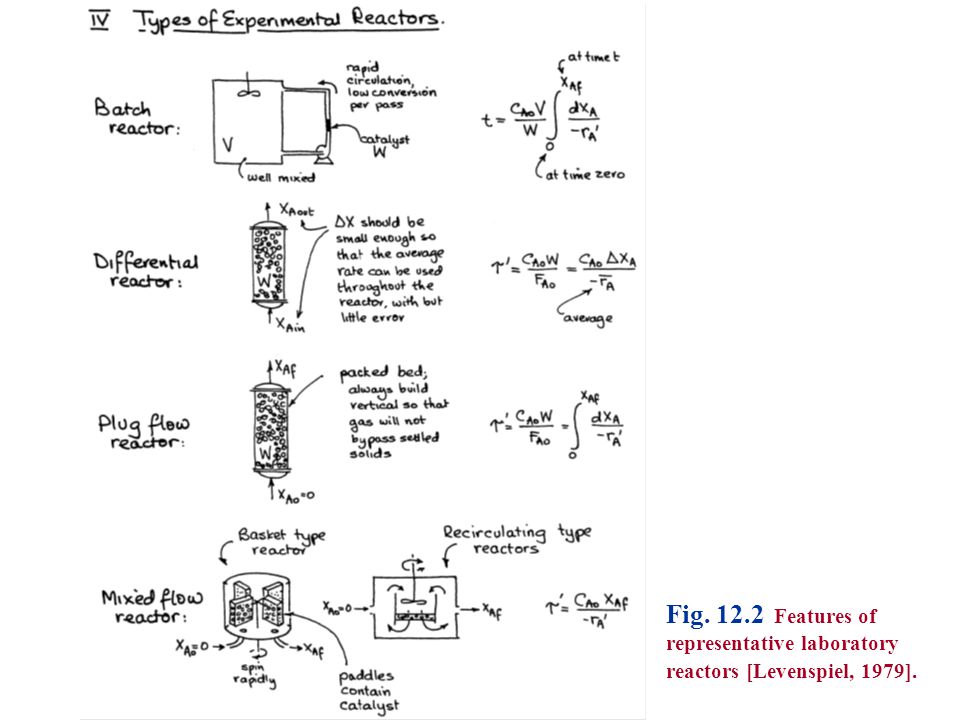 IV Types of Experimental Reactors.
Batch
reactor:
V
well mixed
rapid
circulation,
low conversion
per pass
catalyst
W
t = C_Ao V / W ∫_0^X_Af dX_A / -r_A'
at time t
at time zero
Differential
reactor:
X_Aout
W
X_Ain
ΔX should be
small enough so
that the average
rate can be used
throughout the
reactor, with but
little error
τ' = C_Ao W / F_Ao = C_Ao ΔX_A / -r̄_A
average
Plug flow
reactor:
X_Af
W
X_Ao=0
packed bed;
always build
vertical so that
gas will not
bypass settled
solids
τ' = C_Ao W / F_Ao = ∫_0^X_Af dX_A / -r_A'
Mixed flow
reactor:
Basket type
reactor
X_Ao=0
X_Af
spin
rapidly
paddles
contain
catalyst
Recirculating type
reactors
X_Ao=0
X_Af
τ' = C_Ao X_Af / -r_A'
Fig. 12.2 Features of
representative laboratory
reactors [Levenspiel, 1979].